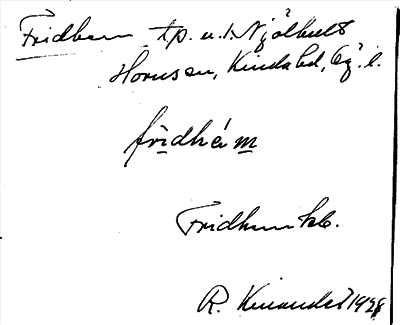 Fridhem tp. u. t. Mjölhult
Hovnsen, Kinda hd, Ög. l.
fridhém
Fridhem kb.
R. Kinander 1928